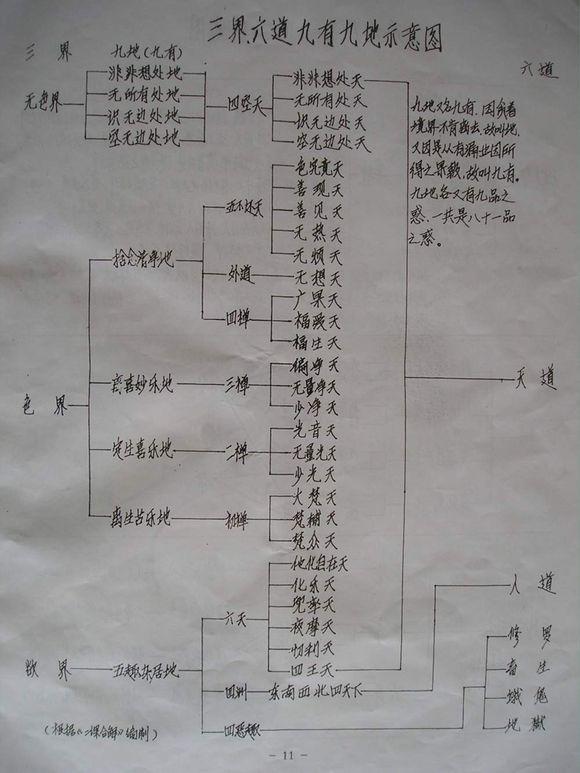 三界六道九有九地示意图
三界 九地(九有) 六道
无色界
非非想处地
无所有处地
识无边处地
空无边处地
四空天
非非想处天
无所有处天
识无边处天
空无边处天
九地又名九有。因贪着
境界不肯离去,故叫地,
又因是从有漏业因所
得之果报,故叫九有。
九地各又有九品之
惑,一共是八十一品
之惑。
色界
捨念清净地
五不还天
色究竟天
善现天
善见天
无热天
无烦天
外道
无想天
四禅
广果天
福爱天
福生天
离喜妙乐地
三禅
徧净天
无量净天
少净天
定生喜乐地
二禅
光音天
无量光天
少光天
离生喜乐地
初禅
大梵天
梵辅天
梵众天
天道
欲界
五趣杂居地
六天
他化自在天
化乐天
兜率天
夜摩天
忉利天
四王天
四洲
东南西北四天下
人道
四恶趣
修罗
畜生
饿鬼
地狱
(根据《二课合解》编制)
- 11 -